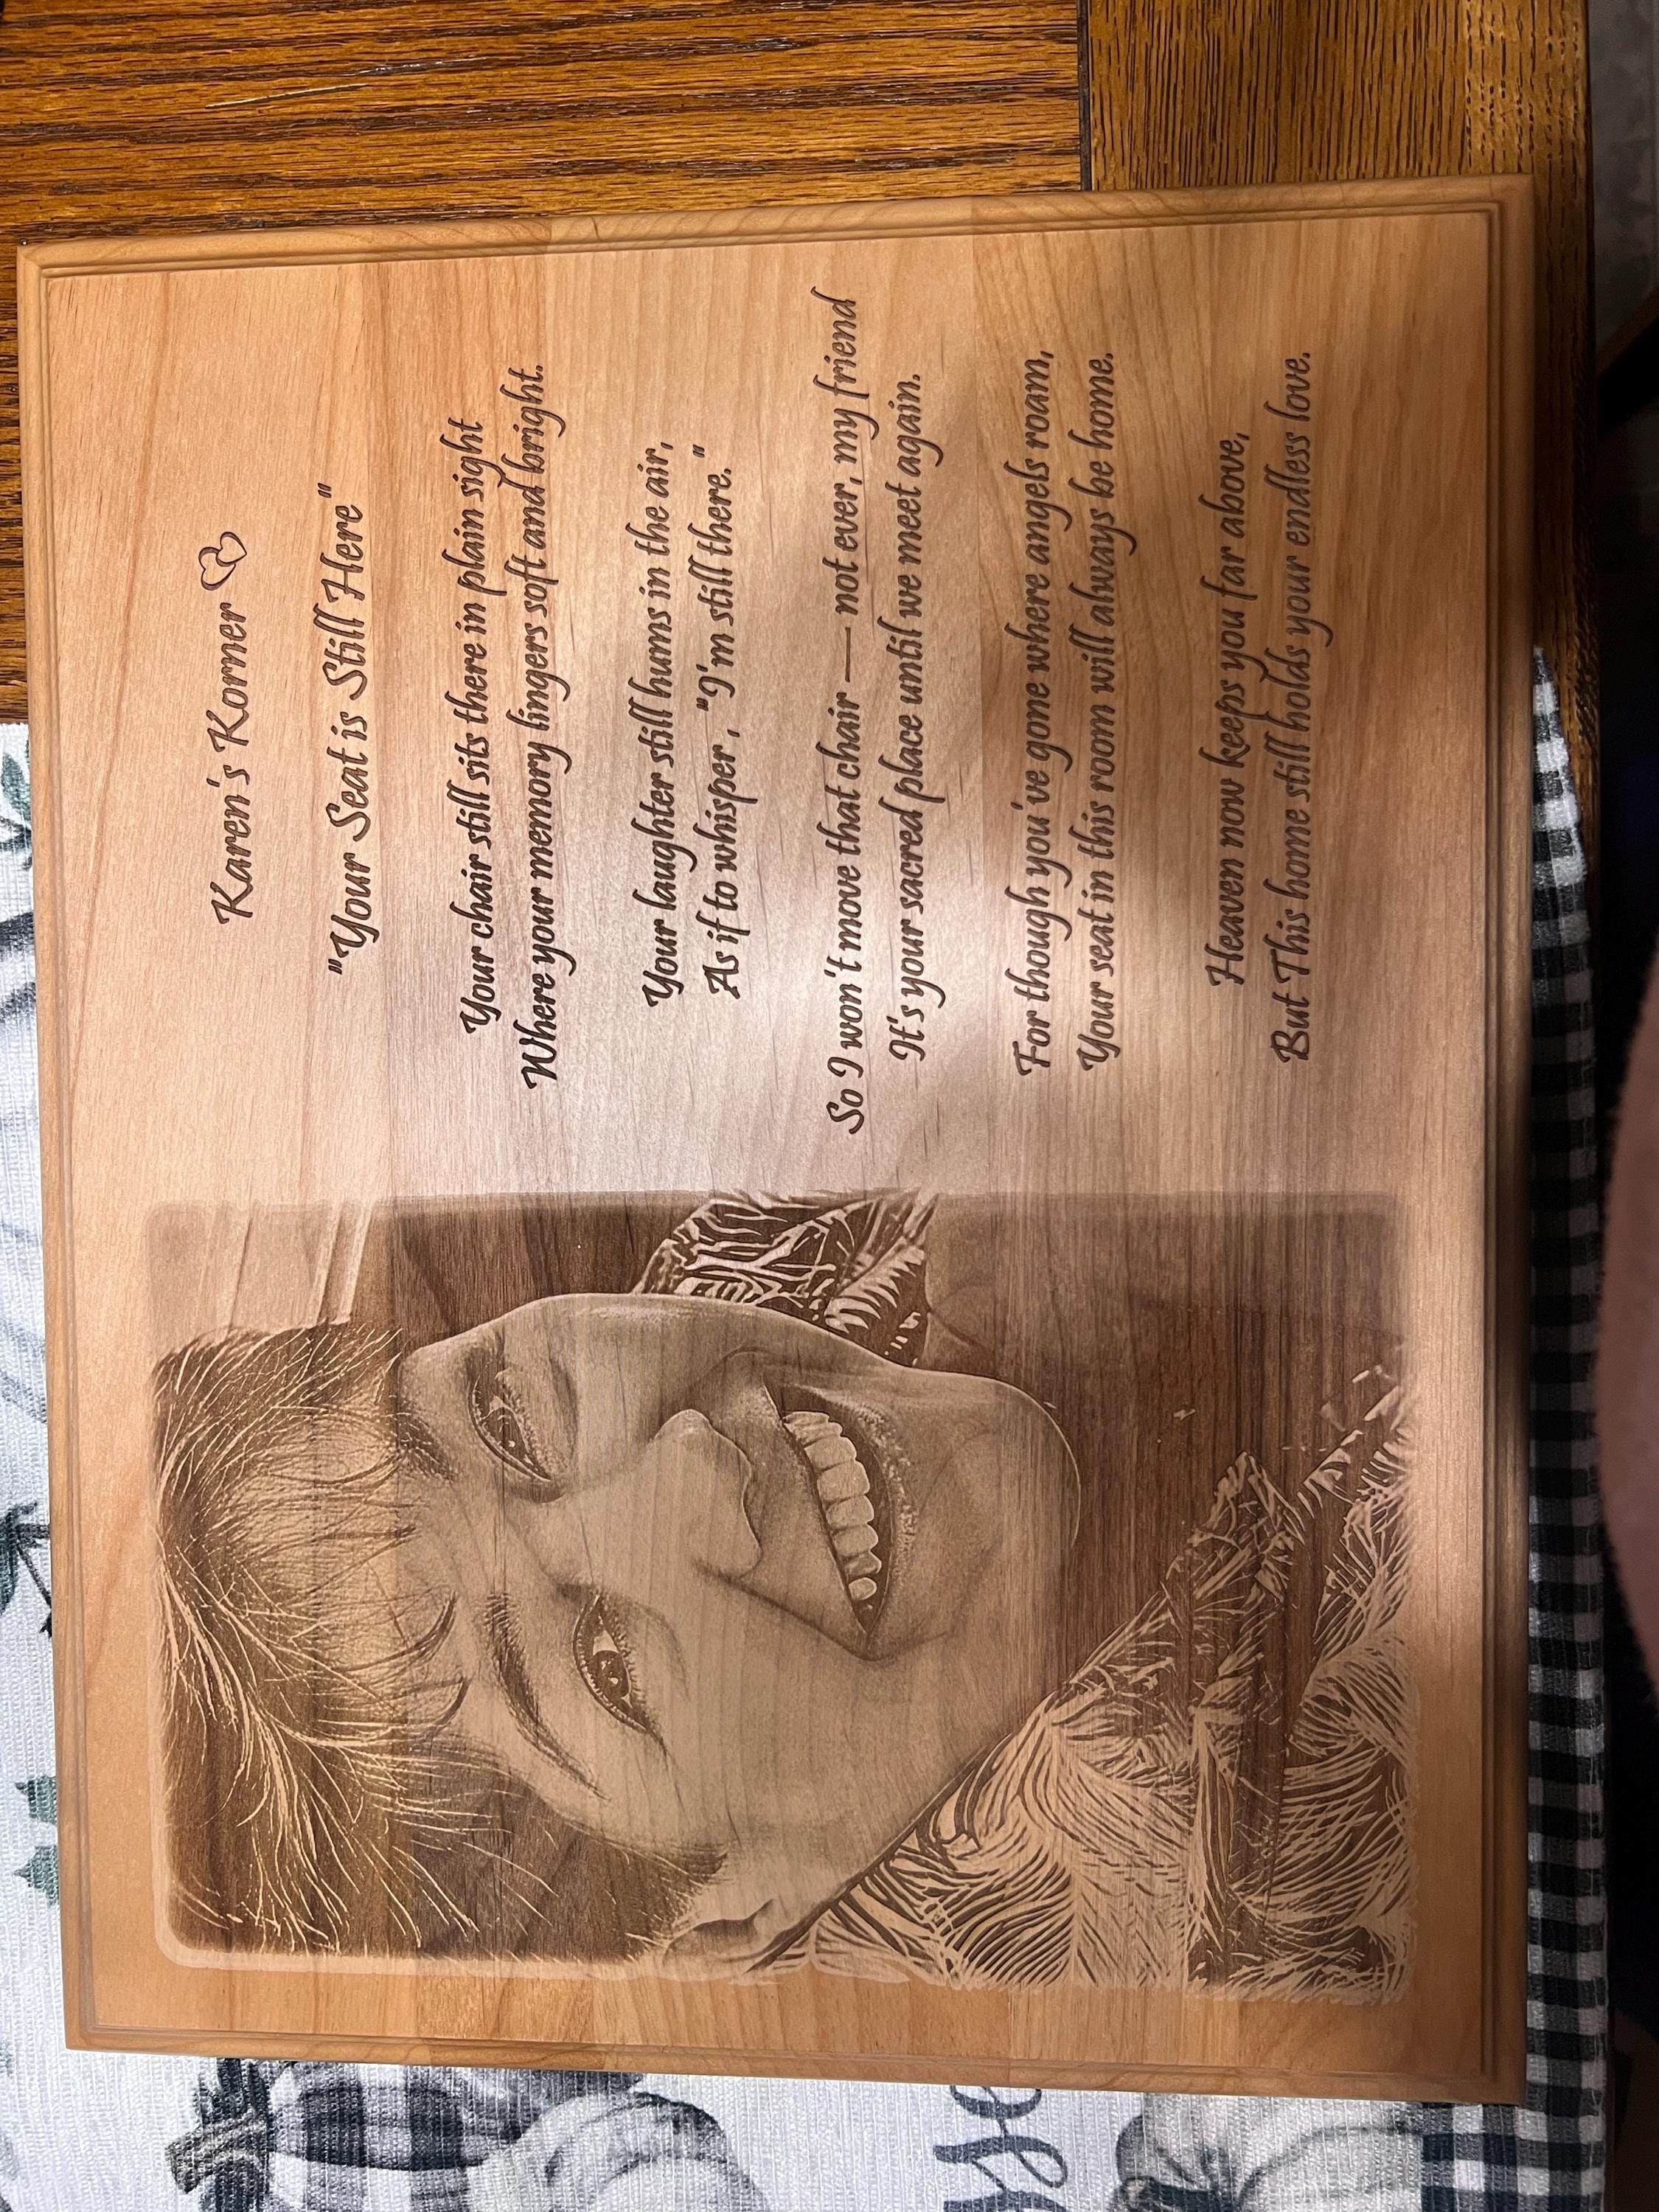 Karen's Korner
"Your Seat is Still Here"
Your chair still sits there in plain sight
Where your memory lingers soft and bright.
Your laughter still hums in the air,
As if to whisper , "I'm still there."
So I won't move that chair — not ever, my friend
It's your sacred place until we meet again.
For though you've gone where angels roam,
Your seat in this room will always be home.
Heaven now keeps you far above,
But This home still holds your endless love.